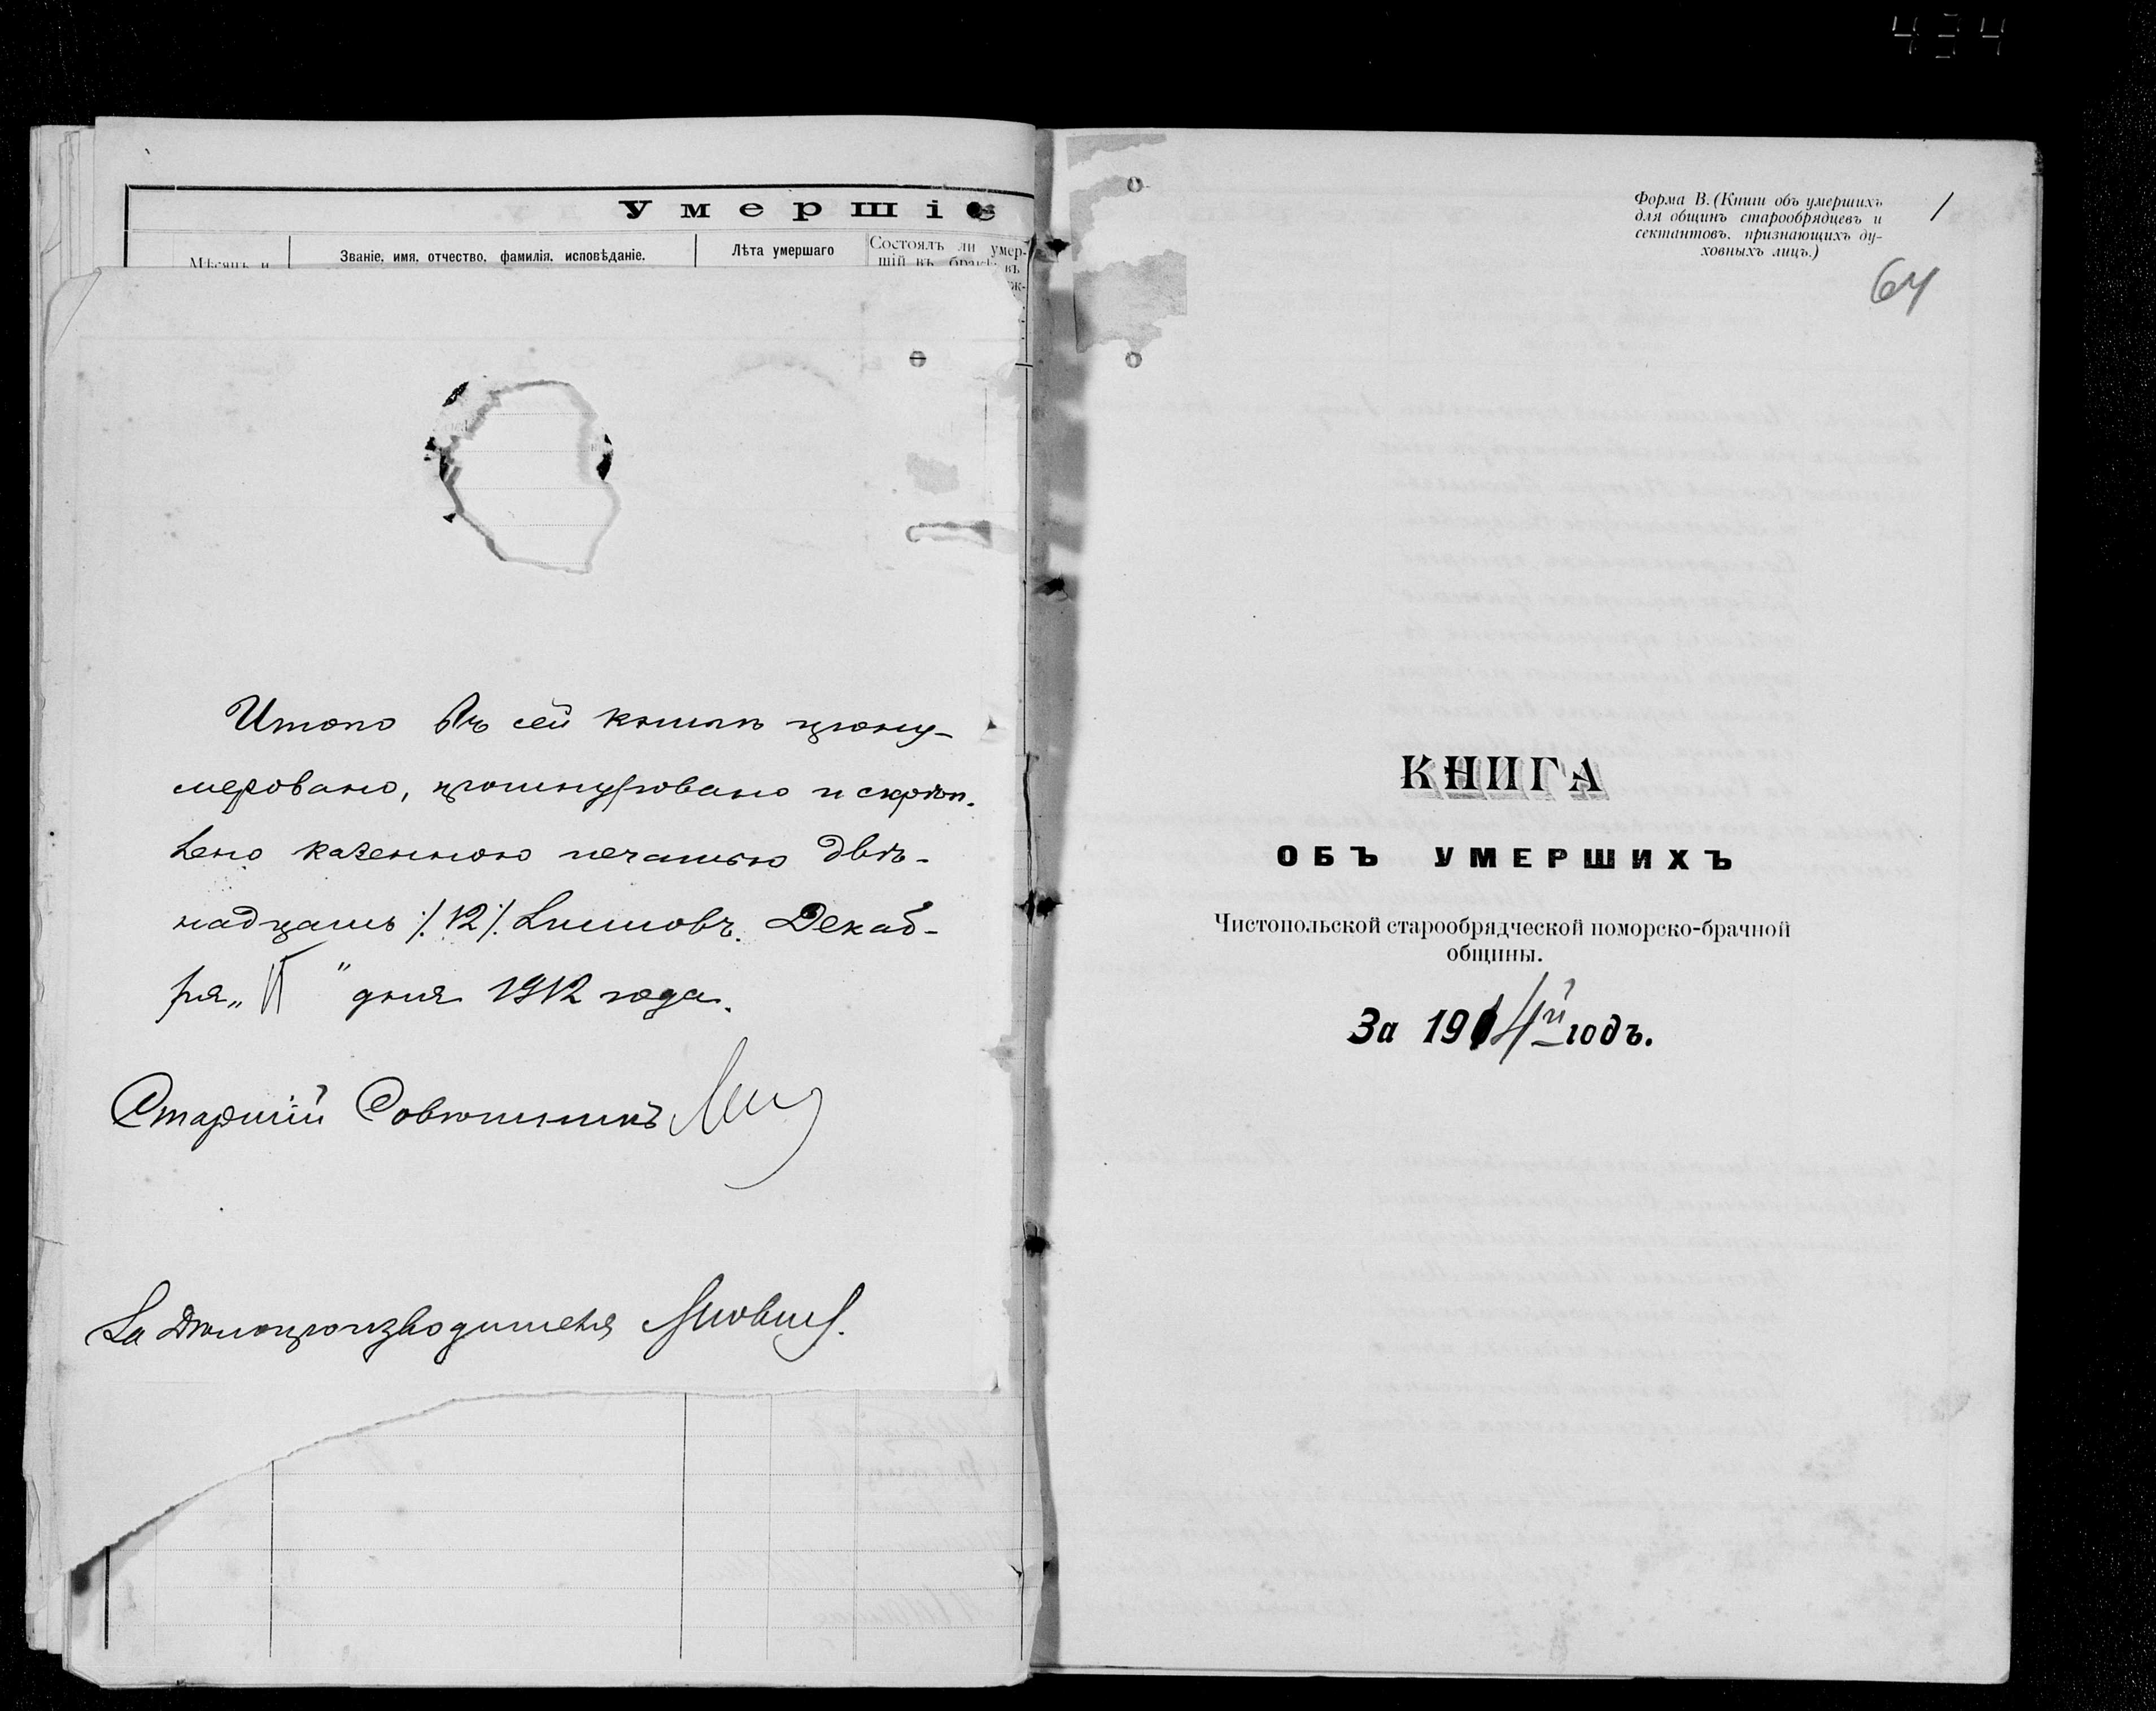 434
Умершіе
Мѣсяцъ и
Званіе, имя, отчество, фамилія, исповѣданіе.
Лѣта умершаго
Состоялъ ли умер-
шій въ бракѣ
Итого въ сей книгѣ прону-
мегровано, прошнуровано и скрѣп-
лено казенною печатью двѣ-
надцать /.12/. листовъ. Декаб-
ря „ " дня 1912 года.
Старшій Совѣтникъ
За Дѣлопроизводителя
Форма В. (Книги объ умершихъ
для общинъ старообрядцевъ и
сектантовъ, признающихъ ду-
ховныхъ лицъ.)
1
64
КНИГА
ОБЪ УМЕРШИХЪ
Чистопольской старообрядческой поморско-брачной
общины.
За 1914й годъ.